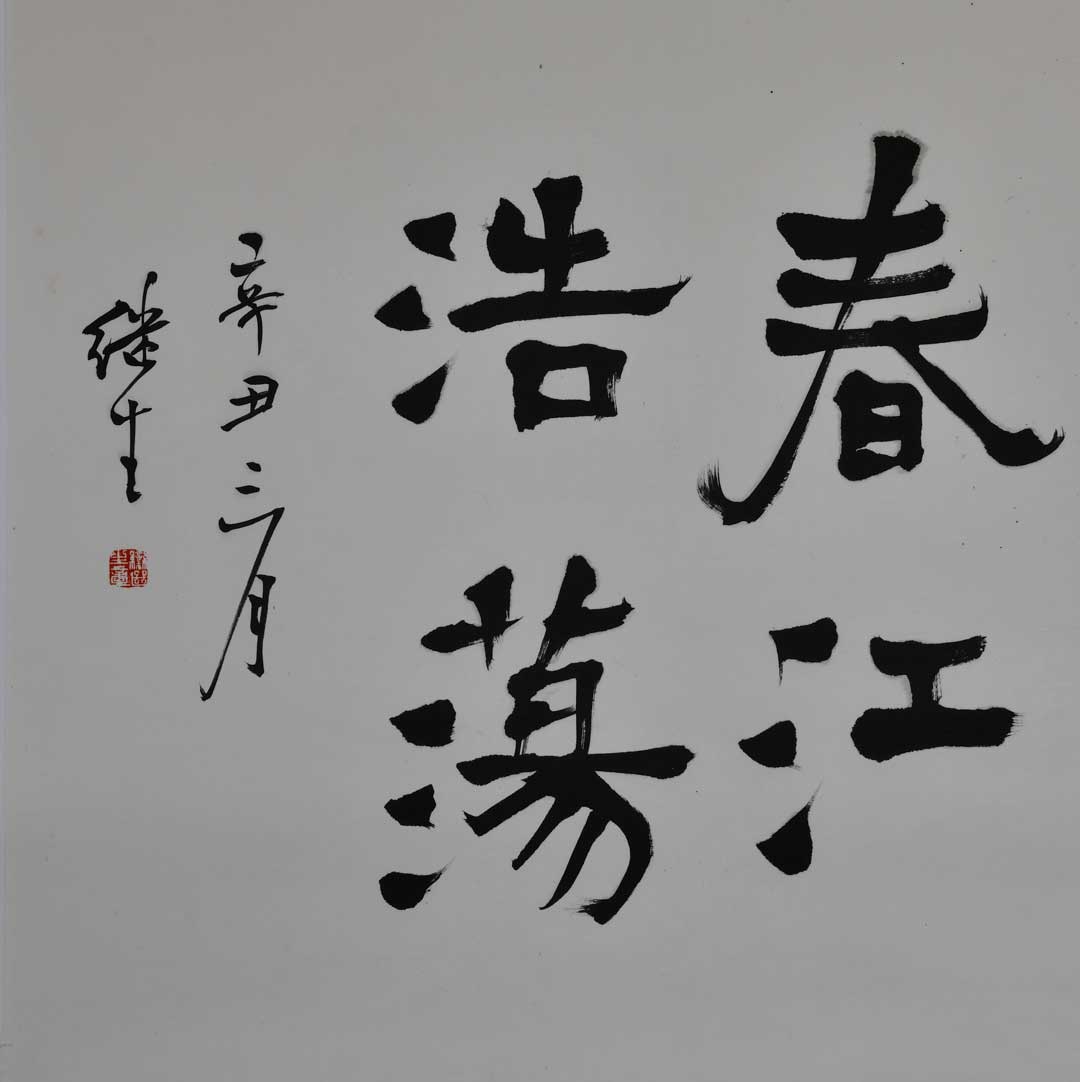 春江
浩蕩
辛丑三月
继生